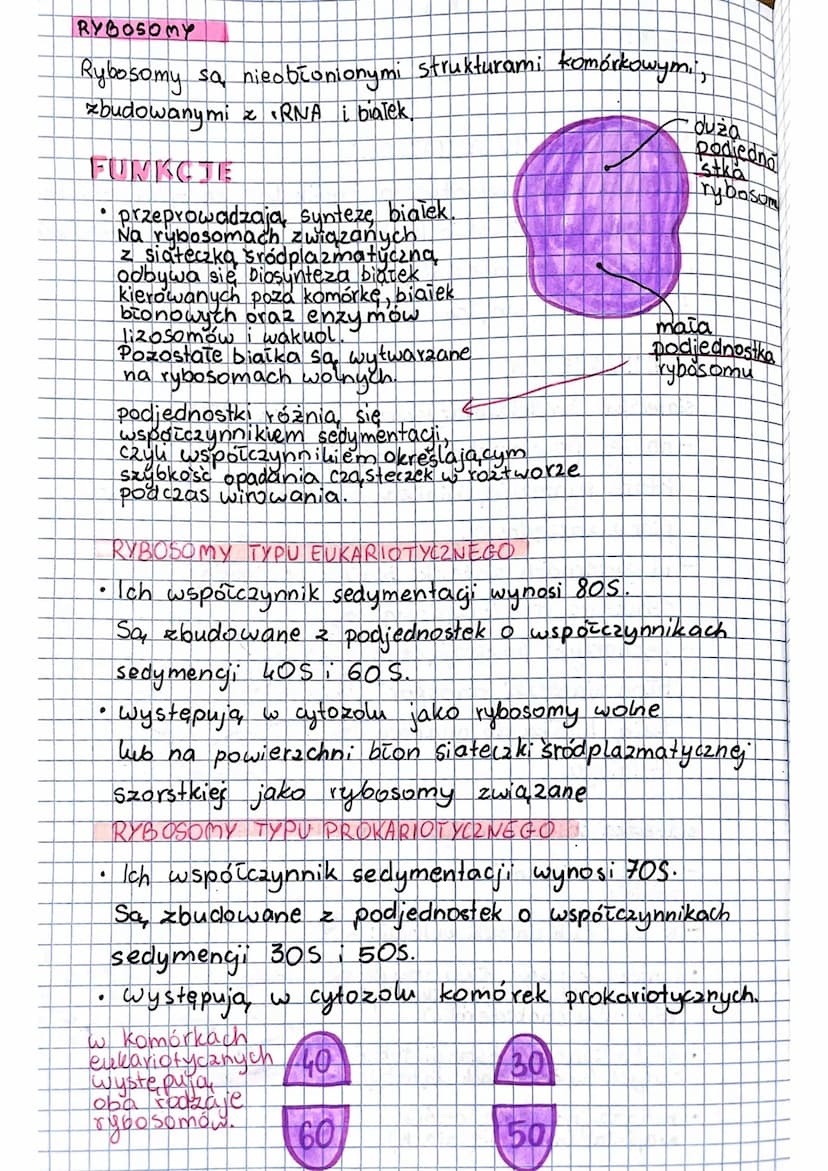 RYBOSOMY
Rybosomy są nieobłonionymi strukturami komórkowymi,
zbudowanymi z rRNA i białek.
duża
podjedno
stka
rybosom
FUNKCJE
• przeprowadzają syntezę białek.
Na rybosomach związanych
z siateczką śródplazmatyczną
odbywa się biosynteza białek
kierowanych poza komórkę, białek
błonowych oraz enzymów
lizosomów i wakuol.
Pozostałe białka są wytwarzane
na rybosomach wolnych.
mała
podjednostka
rybosomu
podjednostki różnią się
współczynnikiem sedymentacji,
czyli współczynnikiem określającym
szybkość opadania cząsteczek w roztworze
podczas wirowania.
RYBOSOMY TYPU EUKARIOTYCZNEGO
• Ich współczynnik sedymentacji wynosi 80S.
Są zbudowane z podjednostek o współczynnikach
sedymencji 40S i 60S.
• występują w cytozolu jako rybosomy wolne
lub na powierzchni błon siateczki śródplazmatycznej
szorstkiej jako rybosomy związane
RYBOSOMY TYPU PROKARIOTYCZNEGO
• Ich współczynnik sedymentacji wynosi 70S.
Są zbudowane z podjednostek o współczynnikach
sedymencji 30S i 50S.
• występują w cytozolu komórek prokariotycznych.
w komórkach
eukariotycznych
występują
oba rodzaje
rybosomów.
40
30
60
50